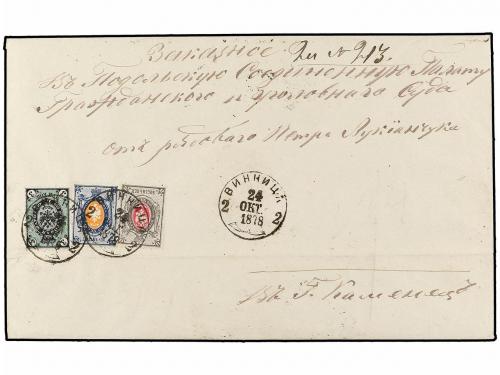 Заказное № 213.
Въ Подольскую Соединенную Палату
Гражданского и уголовнаго Суда
отъ рядоваго Петра Лукіанчука
ВИННИЦА
24
ОКТ.
1878
2 2
Въ Г. Каменецъ